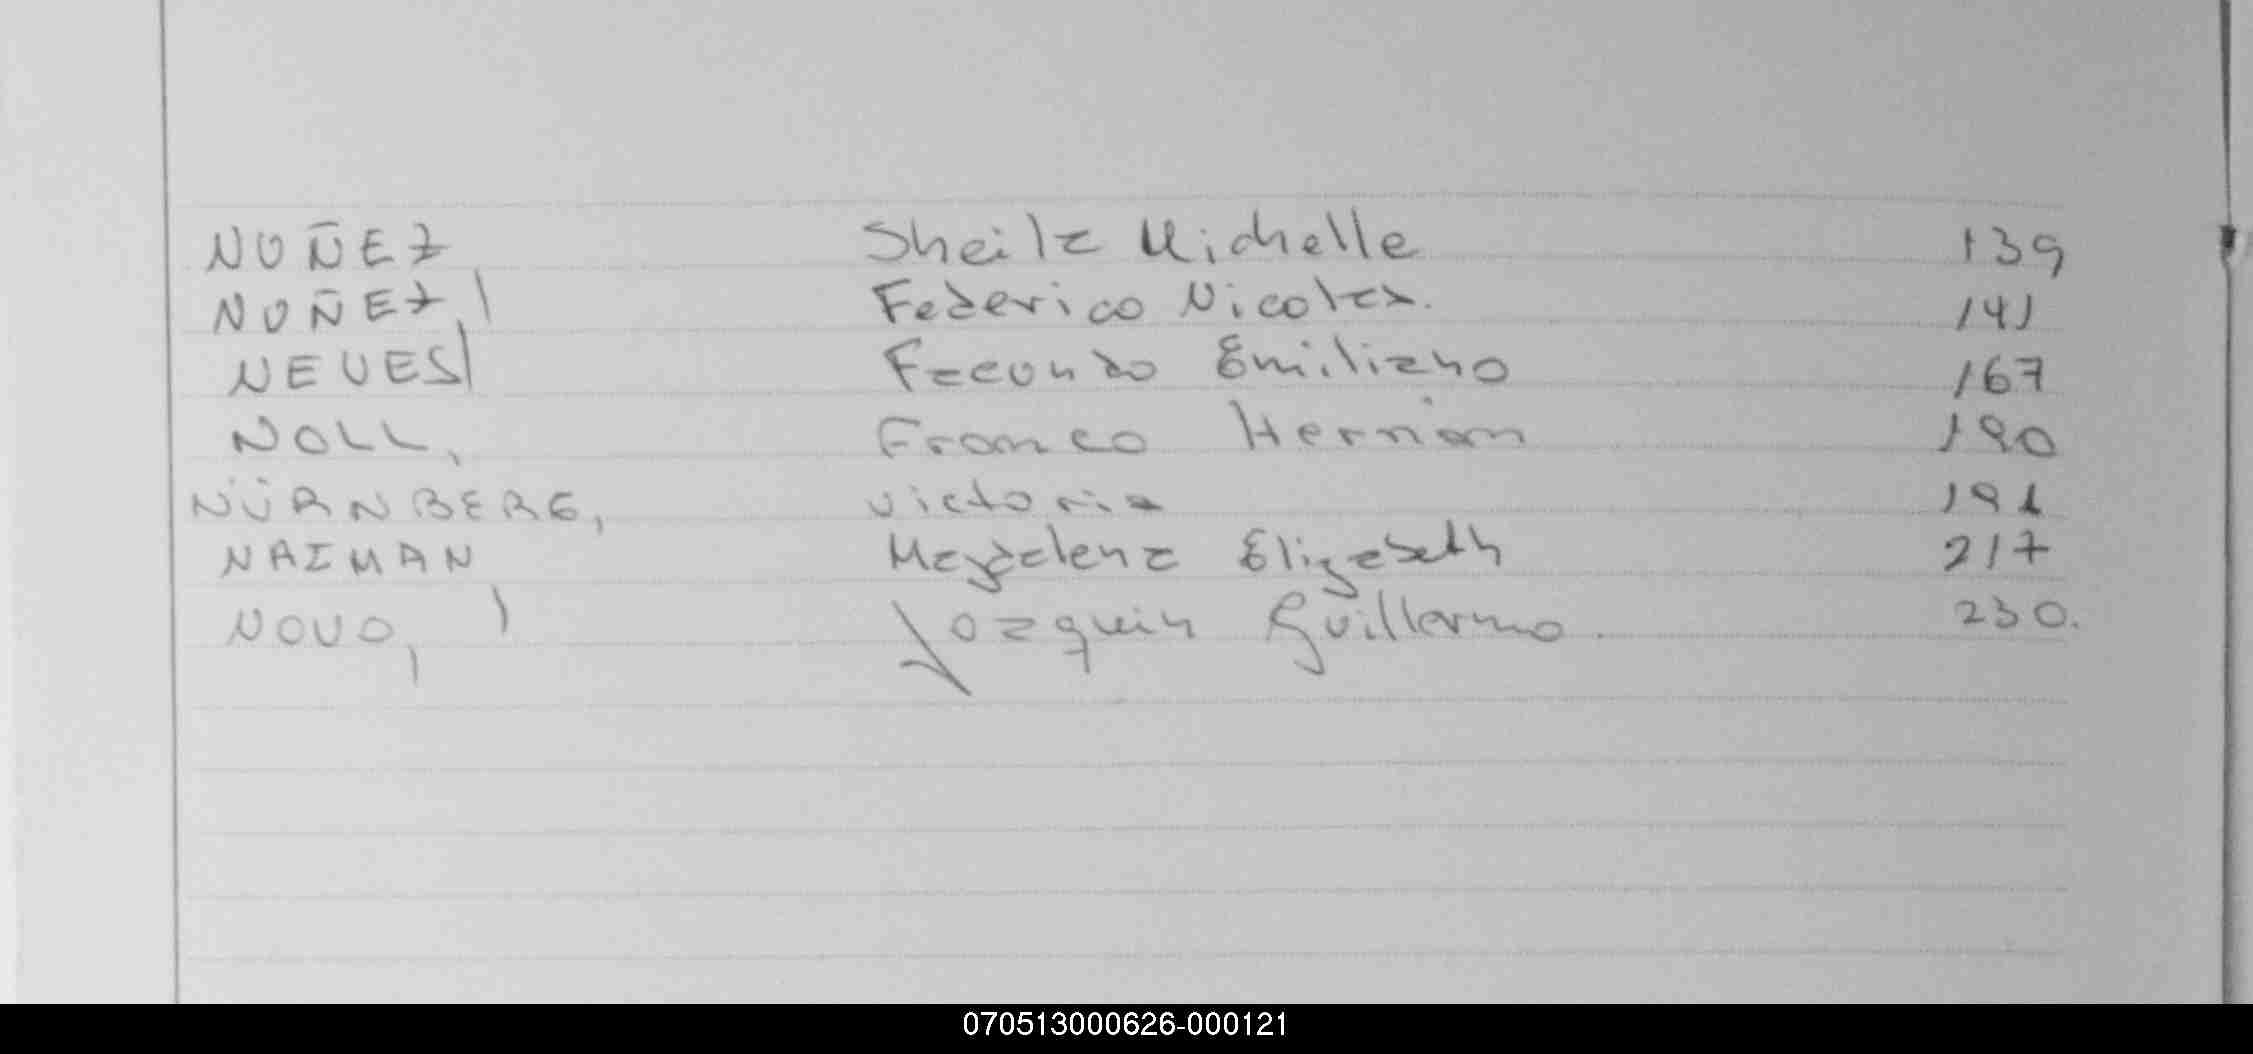 NUÑEZ Sheila Michelle 139
NUÑEZ, Federico Nicolas. 141
NEVES, Facundo Emiliano 167
NOLL, Franco Hernan 190
NÜRNBERG, Victoria 191
NAIMAN, Magdalena Elizabeth 217
NOVO, Joaquin Guillermo. 230.
070513000626-000121